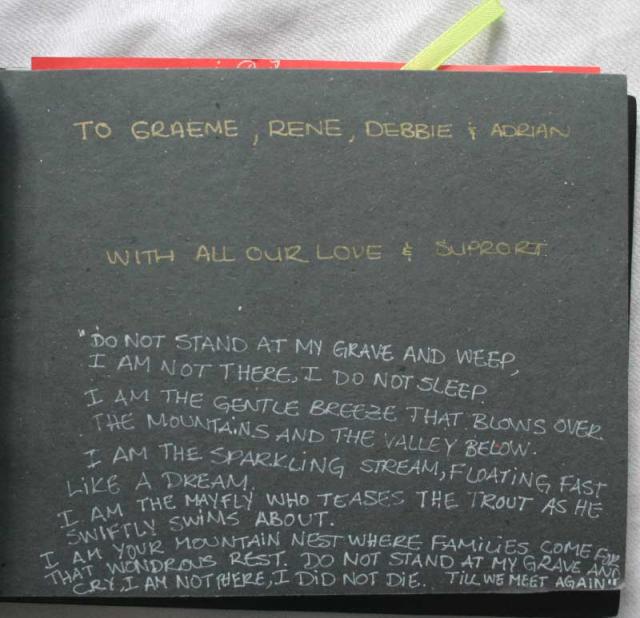 TO GRAEME, RENE, DEBBIE & ADRIAN
WITH ALL OUR LOVE & SUPPORT
"DO NOT STAND AT MY GRAVE AND WEEP,
I AM NOT THERE, I DO NOT SLEEP.
I AM THE GENTLE BREEZE THAT BLOWS OVER
THE MOUNTAINS AND THE VALLEY BELOW.
I AM THE SPARKLING STREAM, FLOATING FAST
LIKE A DREAM.
I AM THE MAYFLY WHO TEASES THE TROUT AS HE
SWIFTLY SWIMS ABOUT.
I AM YOUR MOUNTAIN NEST WHERE FAMILIES COME FOR
THAT WONDROUS REST. DO NOT STAND AT MY GRAVE AND
CRY, I AM NOT THERE, I DID NOT DIE. TILL WE MEET AGAIN"